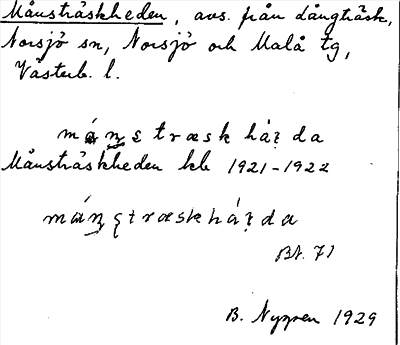 Månsträskheden, avs. från Långträsk,
Norsjö sn, Norsjö och Malå tg,
Västerb. l.
mánstræskháɩda
Månsträskheden kb 1921-1922
mánstræskháɩda
Bl. 71
B. Nygren 1929